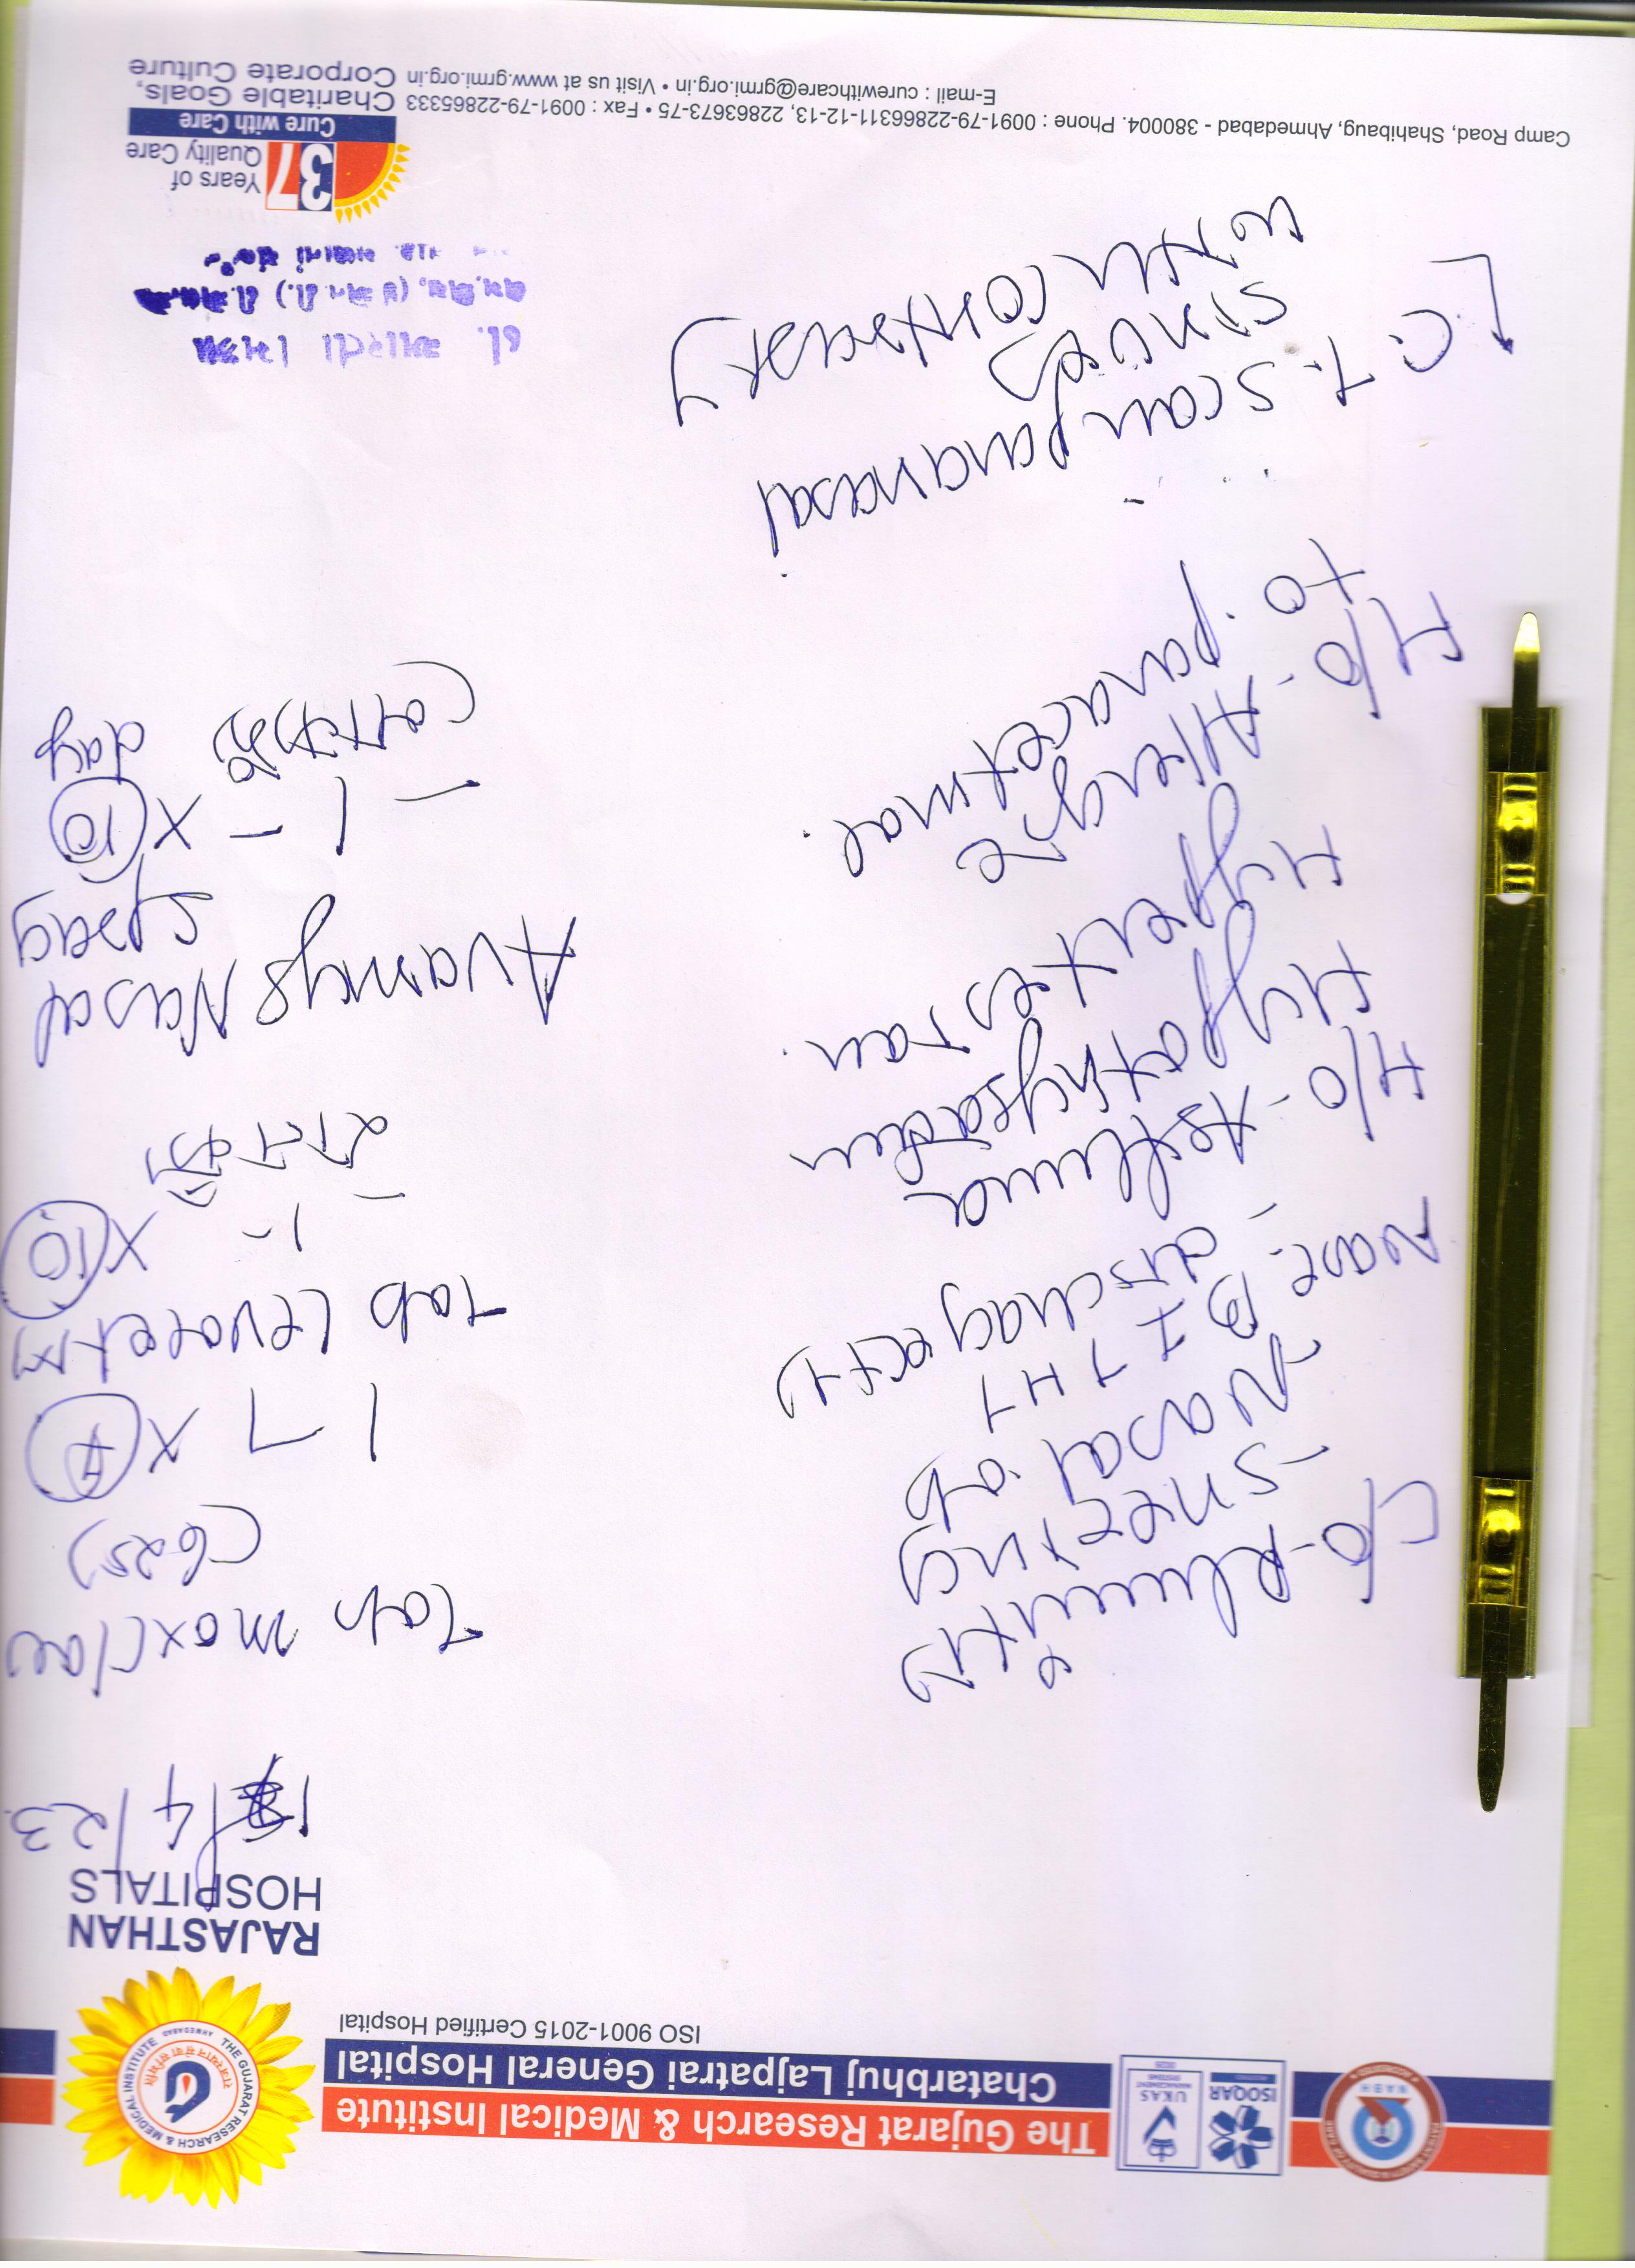 The Gujarat Research & Medical Institute
Chatarbhuj Lajpatrai General Hospital
ISO 9001-2015 Certified Hospital
ISOQAR
UKAS
MANAGEMENT
SYSTEMS
NABH
THE GUJARAT RESEARCH & MEDICAL INSTITUTE
AHMEDABAD
RAJASTHAN
HOSPITALS
/4/23
C/o - Rhinnitis
- sneezing
- Nasal
discharge (++)
H/o - Asthma
Hypothyroidism
Hypertension.
H/o - Allergic
to paracetmol.
C.T. scan paranasal
sinus
contrast
Tab moxclav
(625)
1 1 x 7
Tab Levocet M
- 1 - x 10
रात को
Avamys Nasal
spray
- 1 - x 10
day
37 Years of
Quality Care
Cure with Care
Charitable Goals,
Corporate Culture
Camp Road, Shahibaug, Ahmedabad - 380004. Phone : 0091-79-22866311-12-13, 22863673-75 • Fax : 0091-79-22865333
E-mail : curewithcare@grmi.org.in • Visit us at www.grmi.org.in